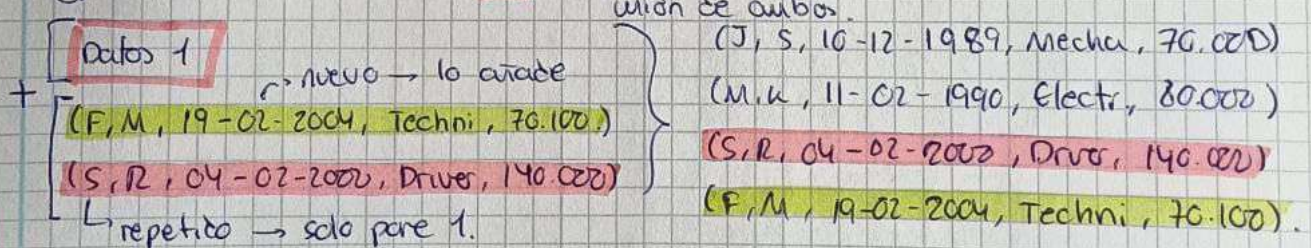 unión de ambos.
Datos 1
↱ nuevo → lo añade
+
(F, M, 19-02-2004, Techni, 70.100.)
(S, R, 04-02-2000, Driver, 140.000)
↳ repetido → solo pone 1.
(J, S, 10-12-1989, Mecha, 70.000)
(M, K, 11-02-1990, Electr, 80.000)
(S, R, 04-02-2000, Driver, 140.000)
(F, M, 19-02-2004, Techni, 70.100).